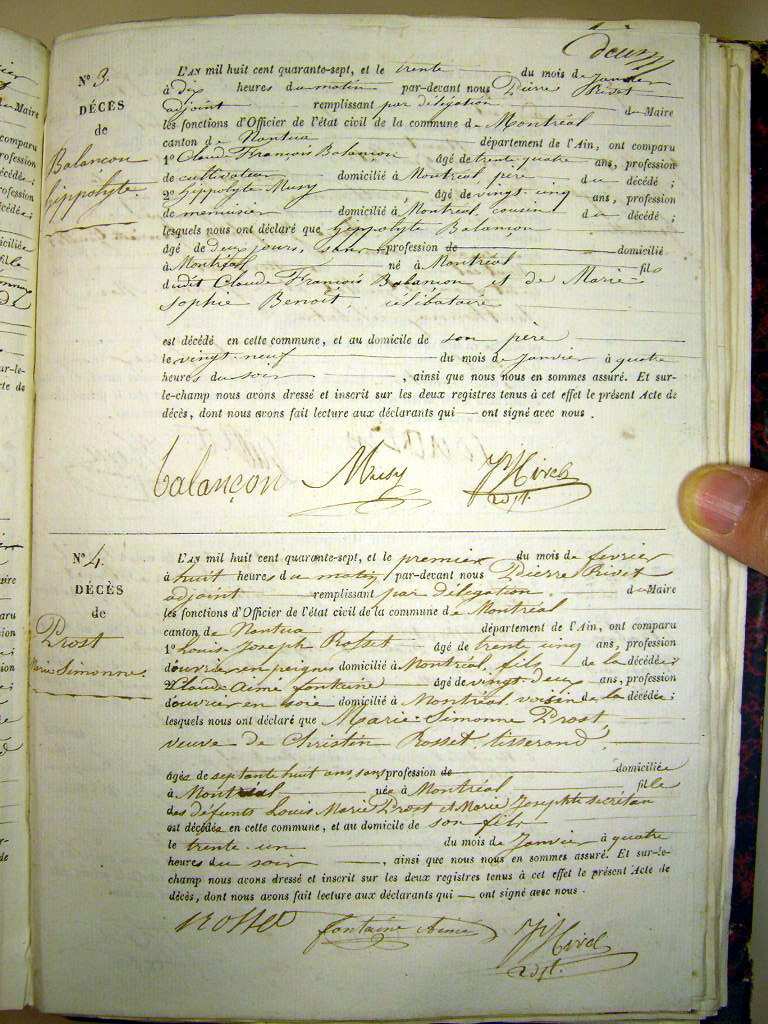 deux
N.º 3.
DÉCÈS
de
Balançon
hippolyte.
L'AN mil huit cent quarante-sept, et le trente du mois de janvier
à dix heures du matin par-devant nous Pierre Rivet
adjoint remplissant par délégation du Maire
les fonctions d'Officier de l'état civil de la commune de Montréal
canton de Nantua département de l'Ain, ont comparu
1º Claude François Balançon âgé de trente quatre ans, profession
de cultivateur domicilié à Montréal père du décédé ;
2º hippolyte Musy âgé de vingt-cinq ans, profession
de menuisier domicilié à Montréal cousin du décédé ;
lesquels nous ont déclaré que hippolyte Balançon
âgé de deux jours, sans profession de domicilié
à Montréal, né à Montréal fils
dudit Claude François Balançon et de Marie-
Sophie Benoit célibataire
est décédé en cette commune, et au domicile de son père
le vingt-neuf du mois de janvier à quatre
heures du soir , ainsi que nous nous en sommes assuré. Et sur-
le-champ nous avons dressé et inscrit sur les deux registres tenus à cet effet le présent Acte de
décès, dont nous avons fait lecture aux déclarants qui ont signé avec nous .
balançon Musy Rivet
adjt.
N.º 4.
DÉCÈS
de
Prost
Marie Simonne.
L'AN mil huit cent quarante-sept, et le premier du mois de février
à huit heures du matin par-devant nous Pierre Rivet
adjoint remplissant par délégation. du Maire
les fonctions d'Officier de l'état civil de la commune de Montréal
canton de Nantua département de l'Ain, ont comparu
1º Louis-Joseph Rosset âgé de trente cinq ans, profession
d'ouvrier en peignes domicilié à Montréal, fils de la décédée ;
2º Claude Aimé fontaine âgé de vingt-deux ans, profession
d'ouvrier en soie domicilié à Montréal voisin de la décédée ;
lesquels nous ont déclaré que Marie-Simonne Prost,
veuve de Christin Rosset, tisserand,
âgée de septante huit ans sans profession de domiciliée
à Montréal née à Montréal fille
des défunts Louis Marie Prost et Marie Josephte Secrétan
est décédée en cette commune, et au domicile de son fils
le trente-un du mois de Janvier à quatre
heures du soir , ainsi que nous nous en sommes assuré. Et sur-le-
champ nous avons dressé et inscrit sur les deux registres tenus à cet effet le présent Acte de
décès, dont nous avons fait lecture aux déclarants qui ont signé avec nous .
Rosset fontaine Aimé Rivet
adjt.